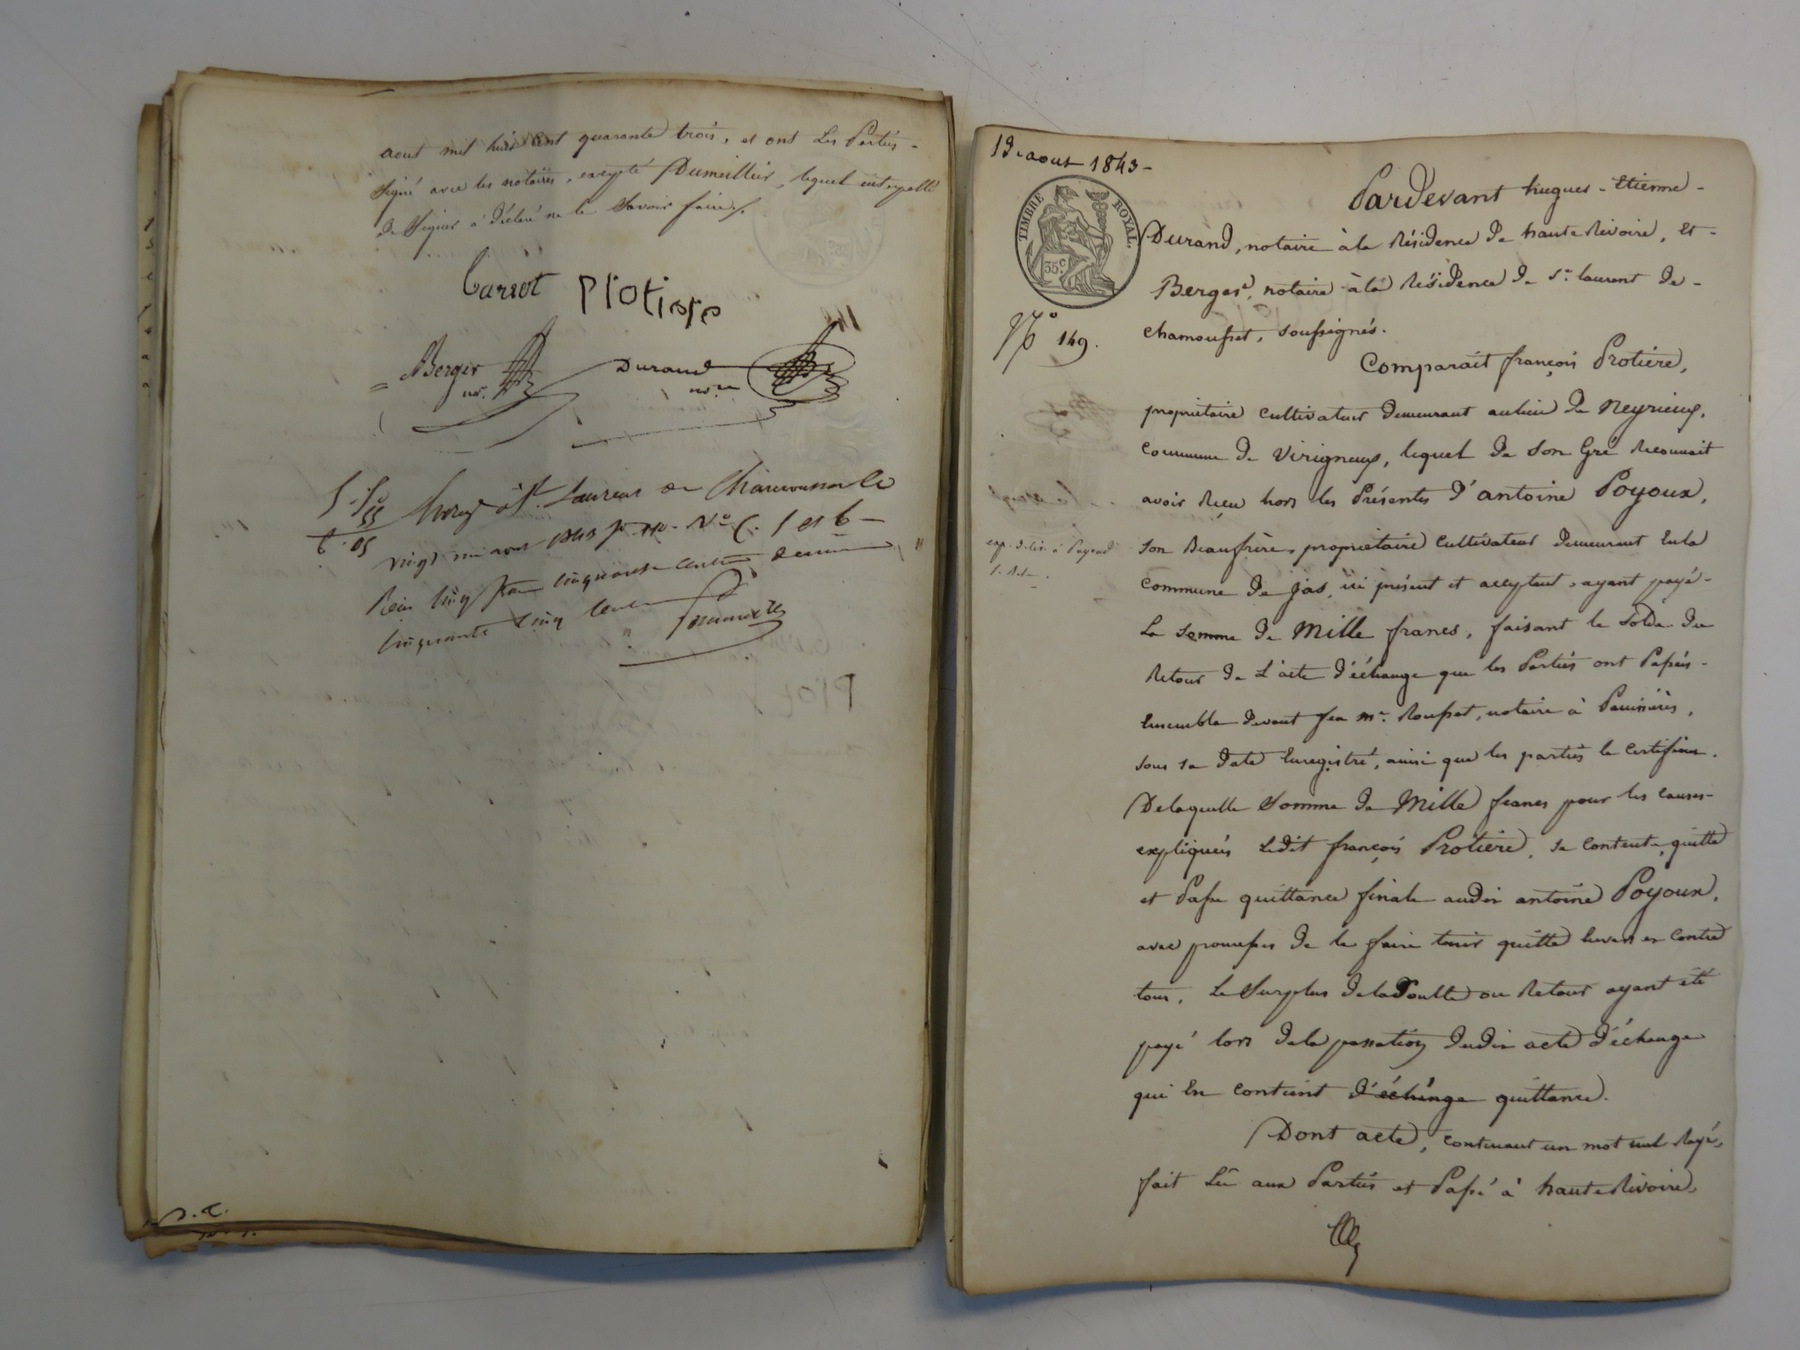 aout mil huit cent quarante trois, et ont Les Parties -
Signé avec les notaires, excepté Dumillier, lequel interpellé
de Signer a déclaré ne le Savoir faire.
Protiere
ABerger
nre.
Durand
nore
St. Laurent de Chamousset le
vingt un aout 1843
Reçu cinq francs cinquante centimes decime
cinquante cinq centimes
5.50
55
6.05
D. C.
19. aout 1843 -
TIMBRE ROYAL.
35 c
No 149.
Pardevant hugues - Etienne -
Durand, notaire à la Résidence de haute Rivoire, et -
Berger, notaire à la Résidence de St. laurent de -
chamousset, soussignés.
Comparait françois Protière,
propriétaire cultivateur demeurant au lieu de Neyrieux,
commune de Virigneux, lequel de Son Gré Reconnait
avoir Reçu hors les Présentes d'antoine Poyoux,
exp. delivr. à Poyoux
Son Beaufrère, propriétaire cultivateur demeurant En la
commune de jas, ici présent et acceptant, ayant payé -
La Somme de Mille francs, faisant le Solde du
Retour de L'acte d'échange que les Parties ont Passés -
Ensemble devant feu me. Rousset, notaire à Panissières,
sous sa date Enregistré, ainsi que les parties le certifient.
De laquelle Somme de Mille francs pour les causes -
expliquées Ledit françois Protière, se contente, quitte
et Passe quittance finale audit antoine Poyoux,
avec promesses de le faire tenir quitte Envers et contre
tous, Le Surplus de la Soulte ou Retour ayant été
payé lors de la passation dudit acte d'échange
qui En contient d'échange quittance.
Dont acte, contenant un mot nul Rayé,
fait Lû aux Parties et Passé à haute Rivoire,